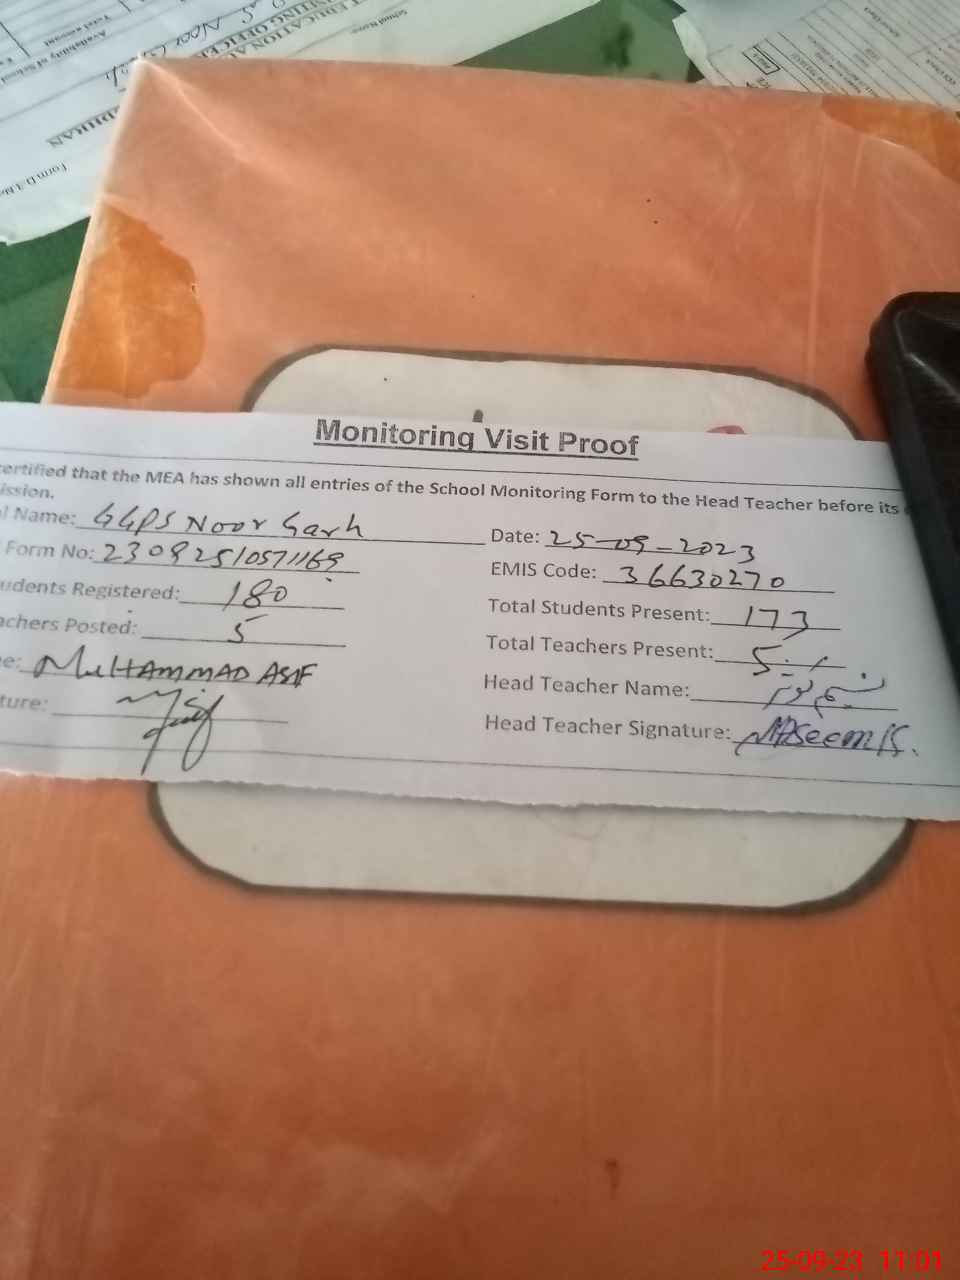 Monitoring Visit Proof
ertified that the MEA has shown all entries of the School Monitoring Form to the Head Teacher before its
ission.
l Name: GGPS Noor Garh Date: 25-09-2023
Form No: 23092510571169 EMIS Code: 36630270
udents Registered: 180 Total Students Present: 173
achers Posted: 5 Total Teachers Present: 5
e: MUHAMMAD ASIF Head Teacher Name: نسیم کوثر
ture: Head Teacher Signature: NAseem K.
25-09-23 11:01